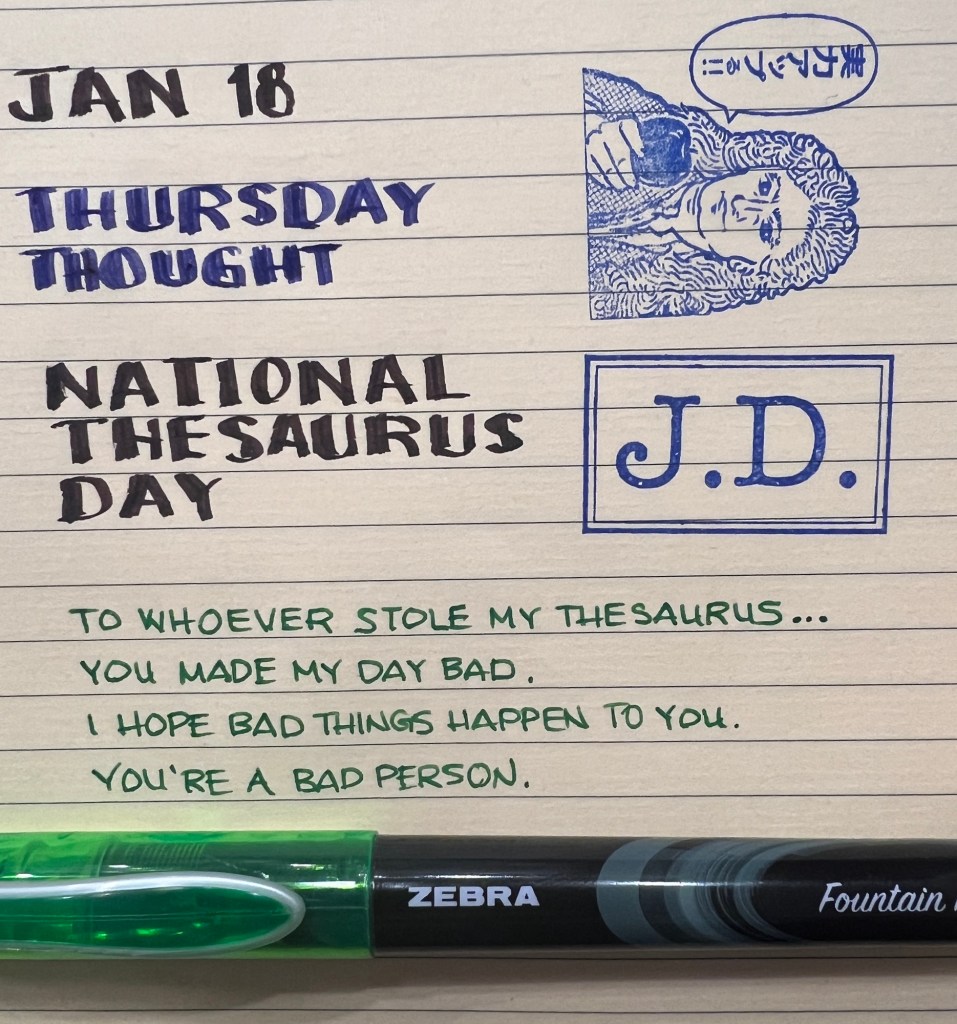 JAN 18
THURSDAY
THOUGHT
実力アップ
する!!
NATIONAL
THESAURUS
DAY
J.D.
TO WHOEVER STOLE MY THESAURUS...
YOU MADE MY DAY BAD.
I HOPE BAD THINGS HAPPEN TO YOU.
YOU'RE A BAD PERSON.
ZEBRA
Fountain